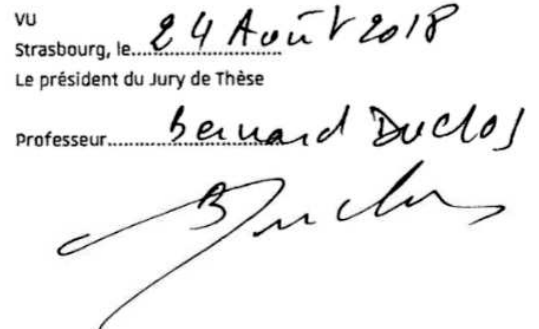 VU
Strasbourg, le 24 Août 2018
Le président du Jury de Thèse
Professeur Bernard Duclos
B Duclos